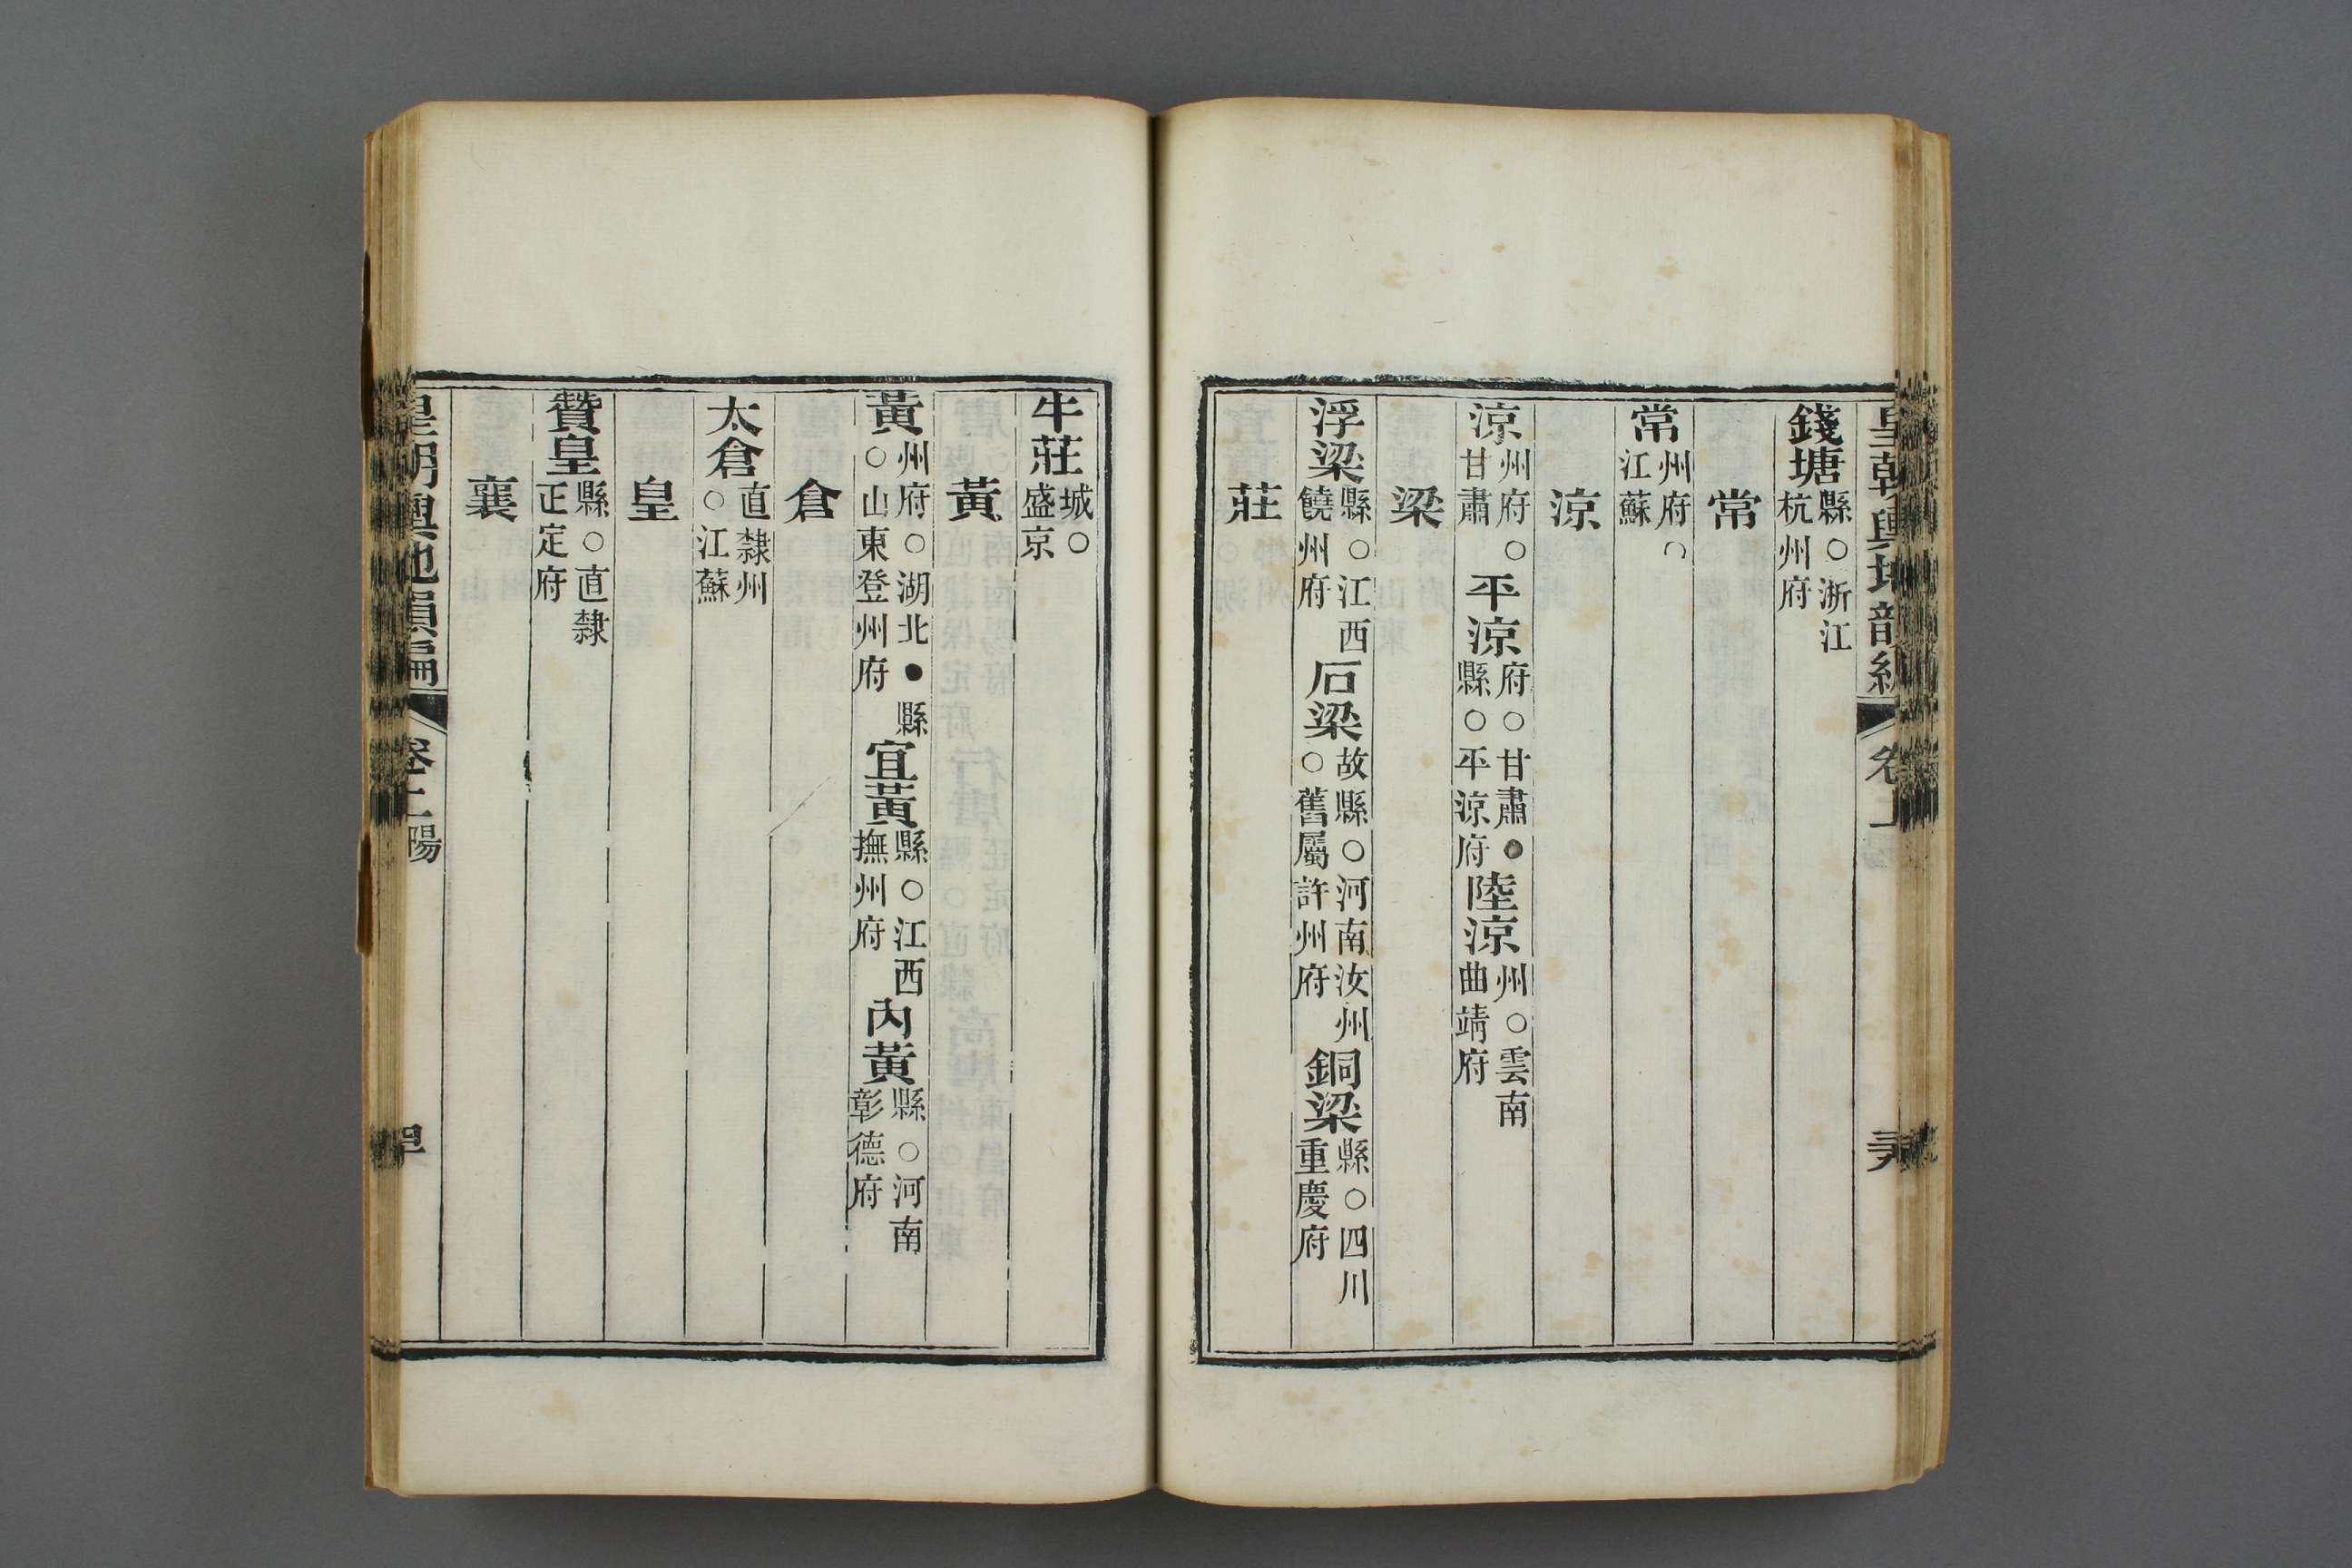 皇朝輿地韻編 卷上
錢塘縣○浙江杭州府
常
常州府○江蘇
涼
涼州府○甘肅平涼府○甘肅●縣○平涼府陸涼州○雲南曲靖府
梁
浮梁縣○江西饒州府石梁故縣○河南汝州○舊屬許州府銅梁縣○四川重慶府
莊
牛莊城○盛京
黃
黃州府○湖北●縣○山東登州府宜黃縣○江西撫州府內黃縣○河南彰德府
倉
太倉直隸州○江蘇
皇
贊皇縣○直隸正定府
襄
皇朝輿地韻編 卷上 陽